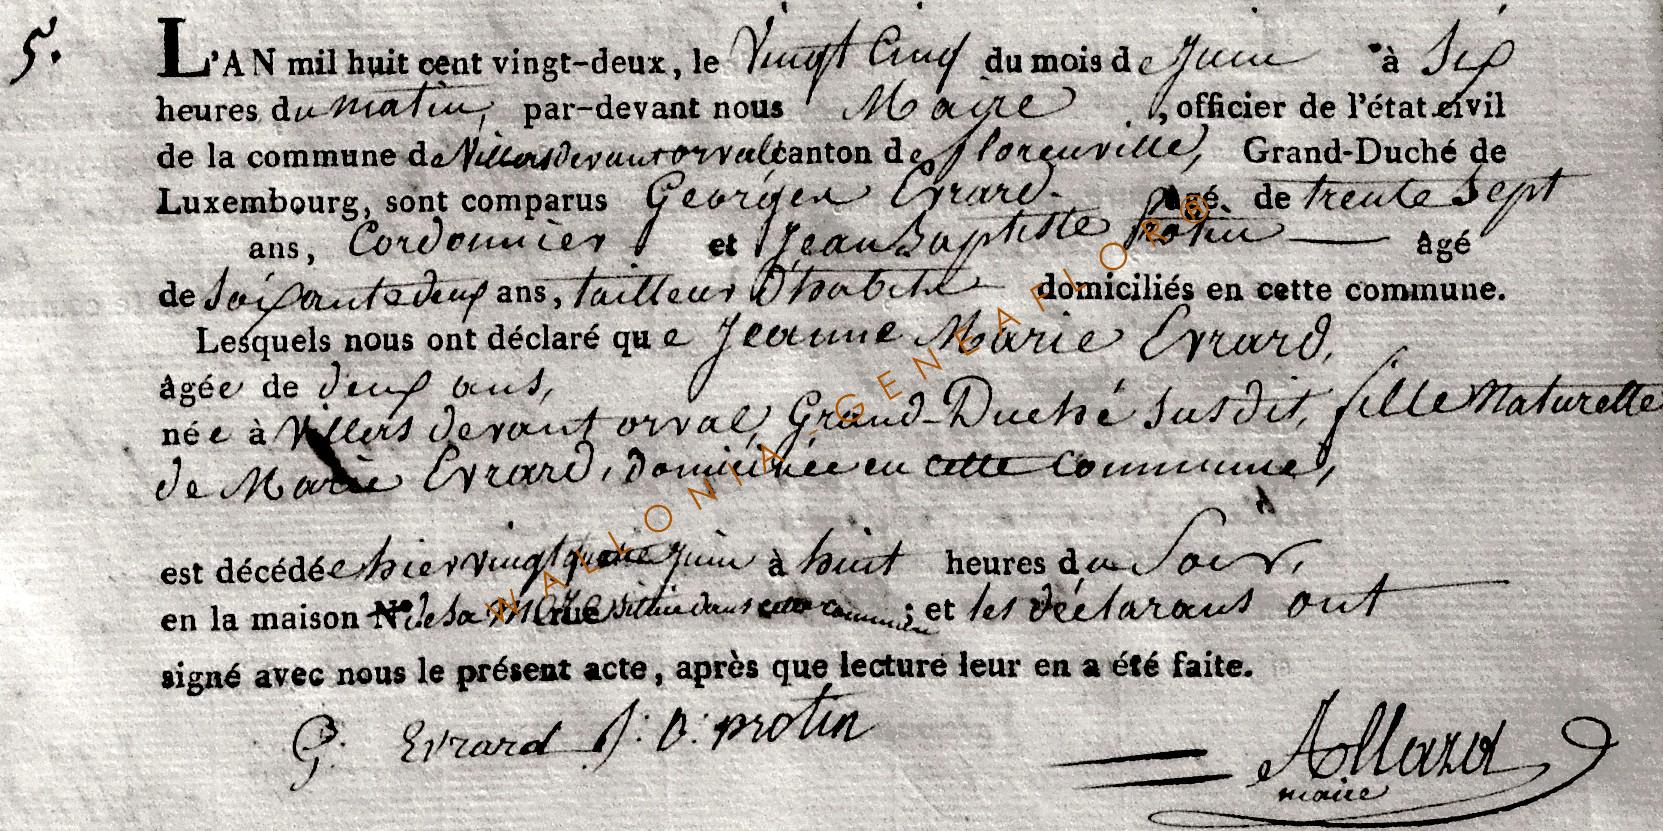 5.
L'AN mil huit cent vingt-deux, le Vingt Cinq du mois de Juin à Six
heures du matin, par-devant nous Maire, officier de l'état civil
de la commune de Villers devant orval canton de florenville, Grand-Duché de
Luxembourg, sont comparus Georges Evrard âgé de trente Sept
ans, Cordonnier et Jean Baptiste protin âgé
de Soixante deux ans, tailleur D'habits domiciliés en cette commune.
Lesquels nous ont déclaré que Jeanne Marie Evrard,
âgée de deux ans,
née à Villers devant orval, Grand-Duché susdit, fille Naturelle
de Marie Evrard, domiciliée en cette commune,
est décédée hier vingt quatre juin à huit heures du Soir,
en la maison N.º de sa mère située dans cette commune; et les déclarans ont
signé avec nous le présent acte, après que lecture leur en a été faite.
G. Evrard J: B: protin
maire
WALLONIA-GENEAFLOR®